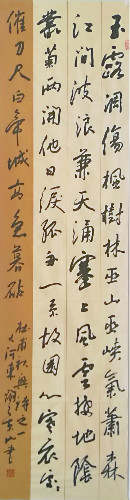 玉露凋傷楓樹林巫山巫峽氣蕭森
江間波浪兼天涌塞上風雲接地陰
叢菊兩開他日淚孤舟一系故園心寒衣處處
催刀尺白帝城高急暮砧
杜甫秋興詩之一
河東書